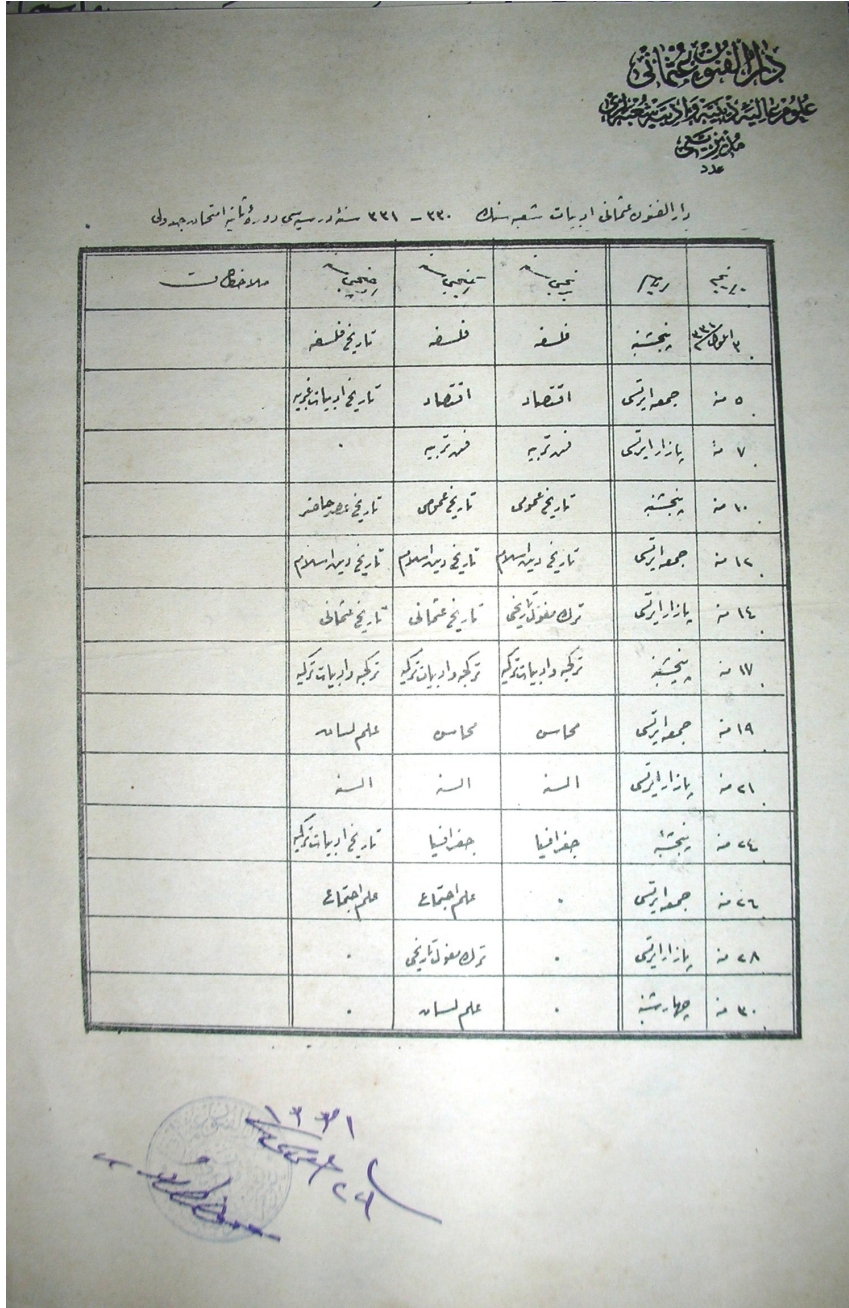 دار الفنون عثمانی
علوم عالیهٔ دینیه و ادبیه شعبه‌لری
مدیریتی
عدد
دار الفنون عثمانی ادبیات شعبه سنك ٣٣٠ – ٣٣١ سنهٔ درسیه سی دورهٔ ثانیه امتحان جدولی
تاریخ ایام برنجی سنه ایکنجی سنه اوچنجی سنه ملاحظات
٣ ایلول ٣٣١ پنجشنبه فلسفه فلسفه تاریخ فلسفه
٥ منه جمعه ایرتسی اقتصاد اقتصاد تاریخ ادبیات غربیه
٧ منه پازار ایرتسی فن تربیه فن تربیه ٠
١٠ منه پنجشنبه تاریخ عمومی تاریخ عمومی تاریخ عصر حاضر
١٢ منه جمعه ایرتسی تاریخ دین اسلام تاریخ دین اسلام تاریخ دین اسلام
١٤ منه پازار ایرتسی ترك مغول تاریخی تاریخ عثمانی تاریخ عثمانی
١٧ منه پنجشنبه تركجه و ادبیات تركیه تركجه و ادبیات تركیه تركجه و ادبیات تركیه
١٩ منه جمعه ایرتسی محاسن محاسن علم لسان
٢١ منه پازار ایرتسی السنه السنه السنه
٢٤ منه پنجشنبه جغرافیا جغرافیا تاریخ ادبیات تركیه
٢٦ منه جمعه ایرتسی ٠ علم اجتماع علم اجتماع
٢٨ منه پازار ایرتسی ٠ ترك مغول تاریخی ٠
٣٠ منه چهارشنبه ٠ علم لسان ٠
١٣٣١